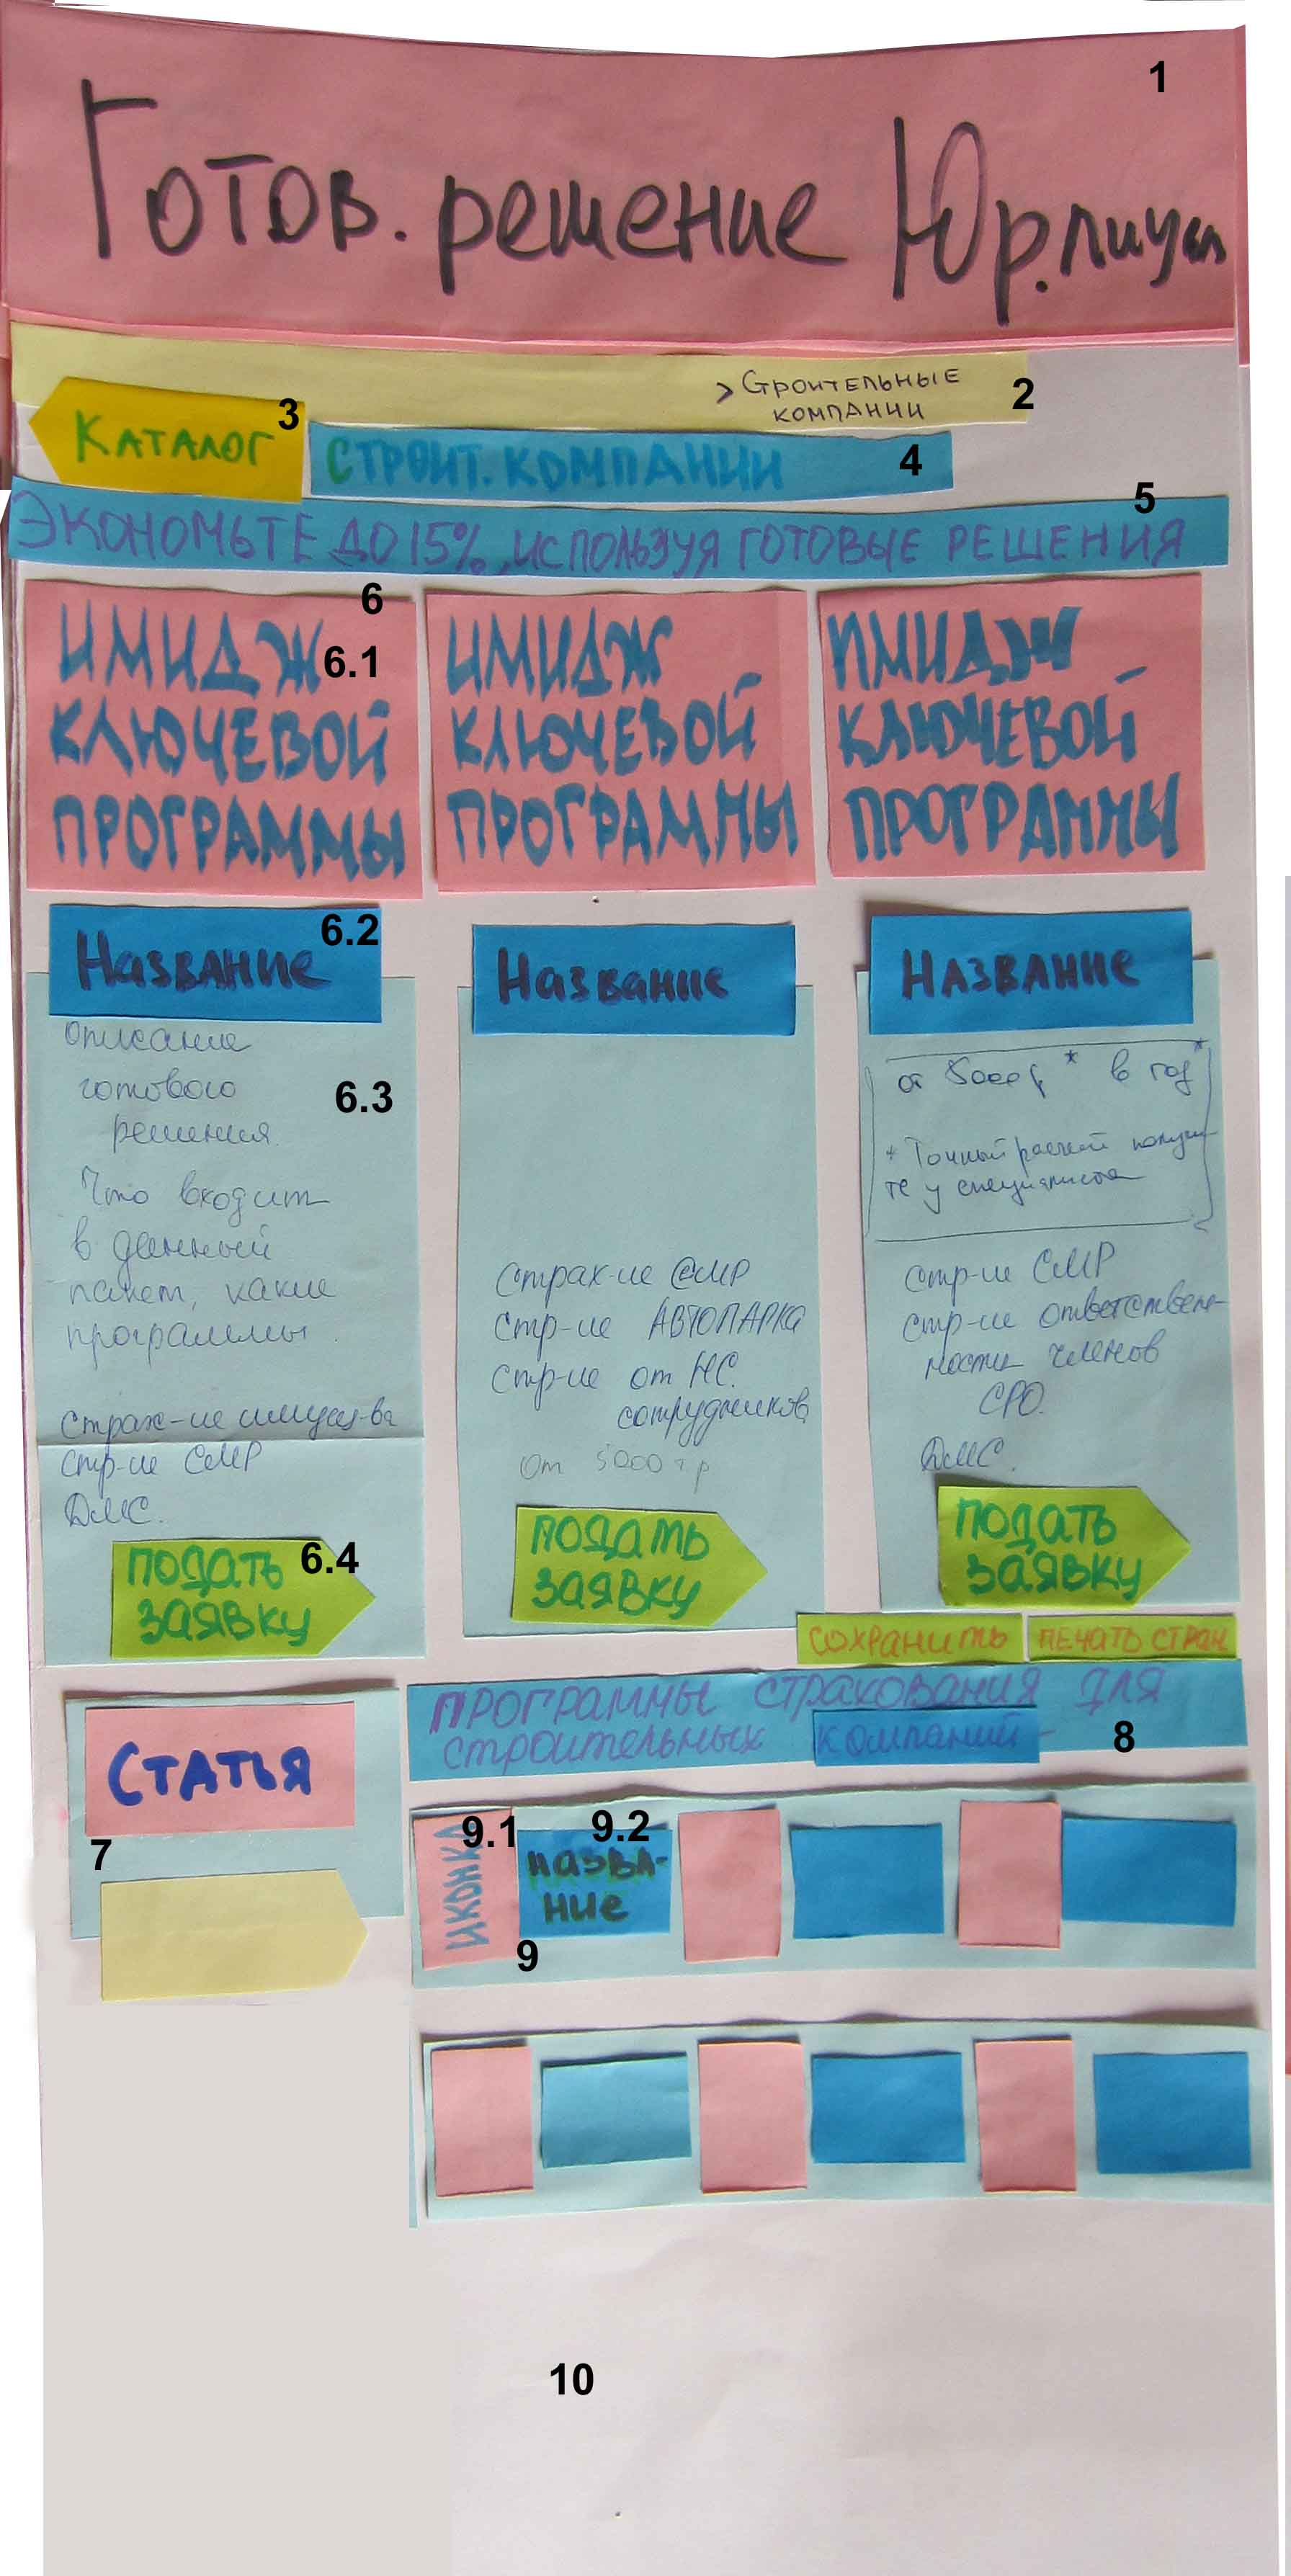 1
Готов. решение Юр.лицам
> Строительные
компании
2
Каталог
3
СТРОИТ. КОМПАНИИ
4
5
ЭКОНОМЬТЕ ДО 15%, ИСПОЛЬЗУЯ ГОТОВЫЕ РЕШЕНИЯ
6
6.1
ИМИДЖ
КЛЮЧЕВОЙ
ПРОГРАММЫ
ИМИДЖ
КЛЮЧЕВОЙ
ПРОГРАММЫ
ИМИДЖ
КЛЮЧЕВОЙ
ПРОГРАММЫ
6.2
Название
Описание
готового
решения.
6.3
Что входит
в данный
пакет, какие
программы.
Страх-ие имущ-ва
Стр-ие СМР
ДМС.
ПОДАТЬ
ЗАЯВКУ
6.4
Название
Страх-ие СМР
Стр-ие АВТОПАРКА
Стр-ие от НС.
сотрудников
От 5000 т.р
ПОДАТЬ
ЗАЯВКУ
НАЗВАНИЕ
от 5000р * в год *
* Точный расчет получи-
те у специалиста
Стр-ие СМР
Стр-ие ответствен-
ности членов
СРО.
ДМС.
ПОДАТЬ
ЗАЯВКУ
СОХРАНИТЬ
ПЕЧАТЬ СТРАН
СТАТЬЯ
7
ПРОГРАММЫ СТРАХОВАНИЯ ДЛЯ
СТРОИТЕЛЬНЫХ КОМПАНИЙ
8
9.1
ИКОНКА
9.2
НАЗВА-
НИЕ
9
10